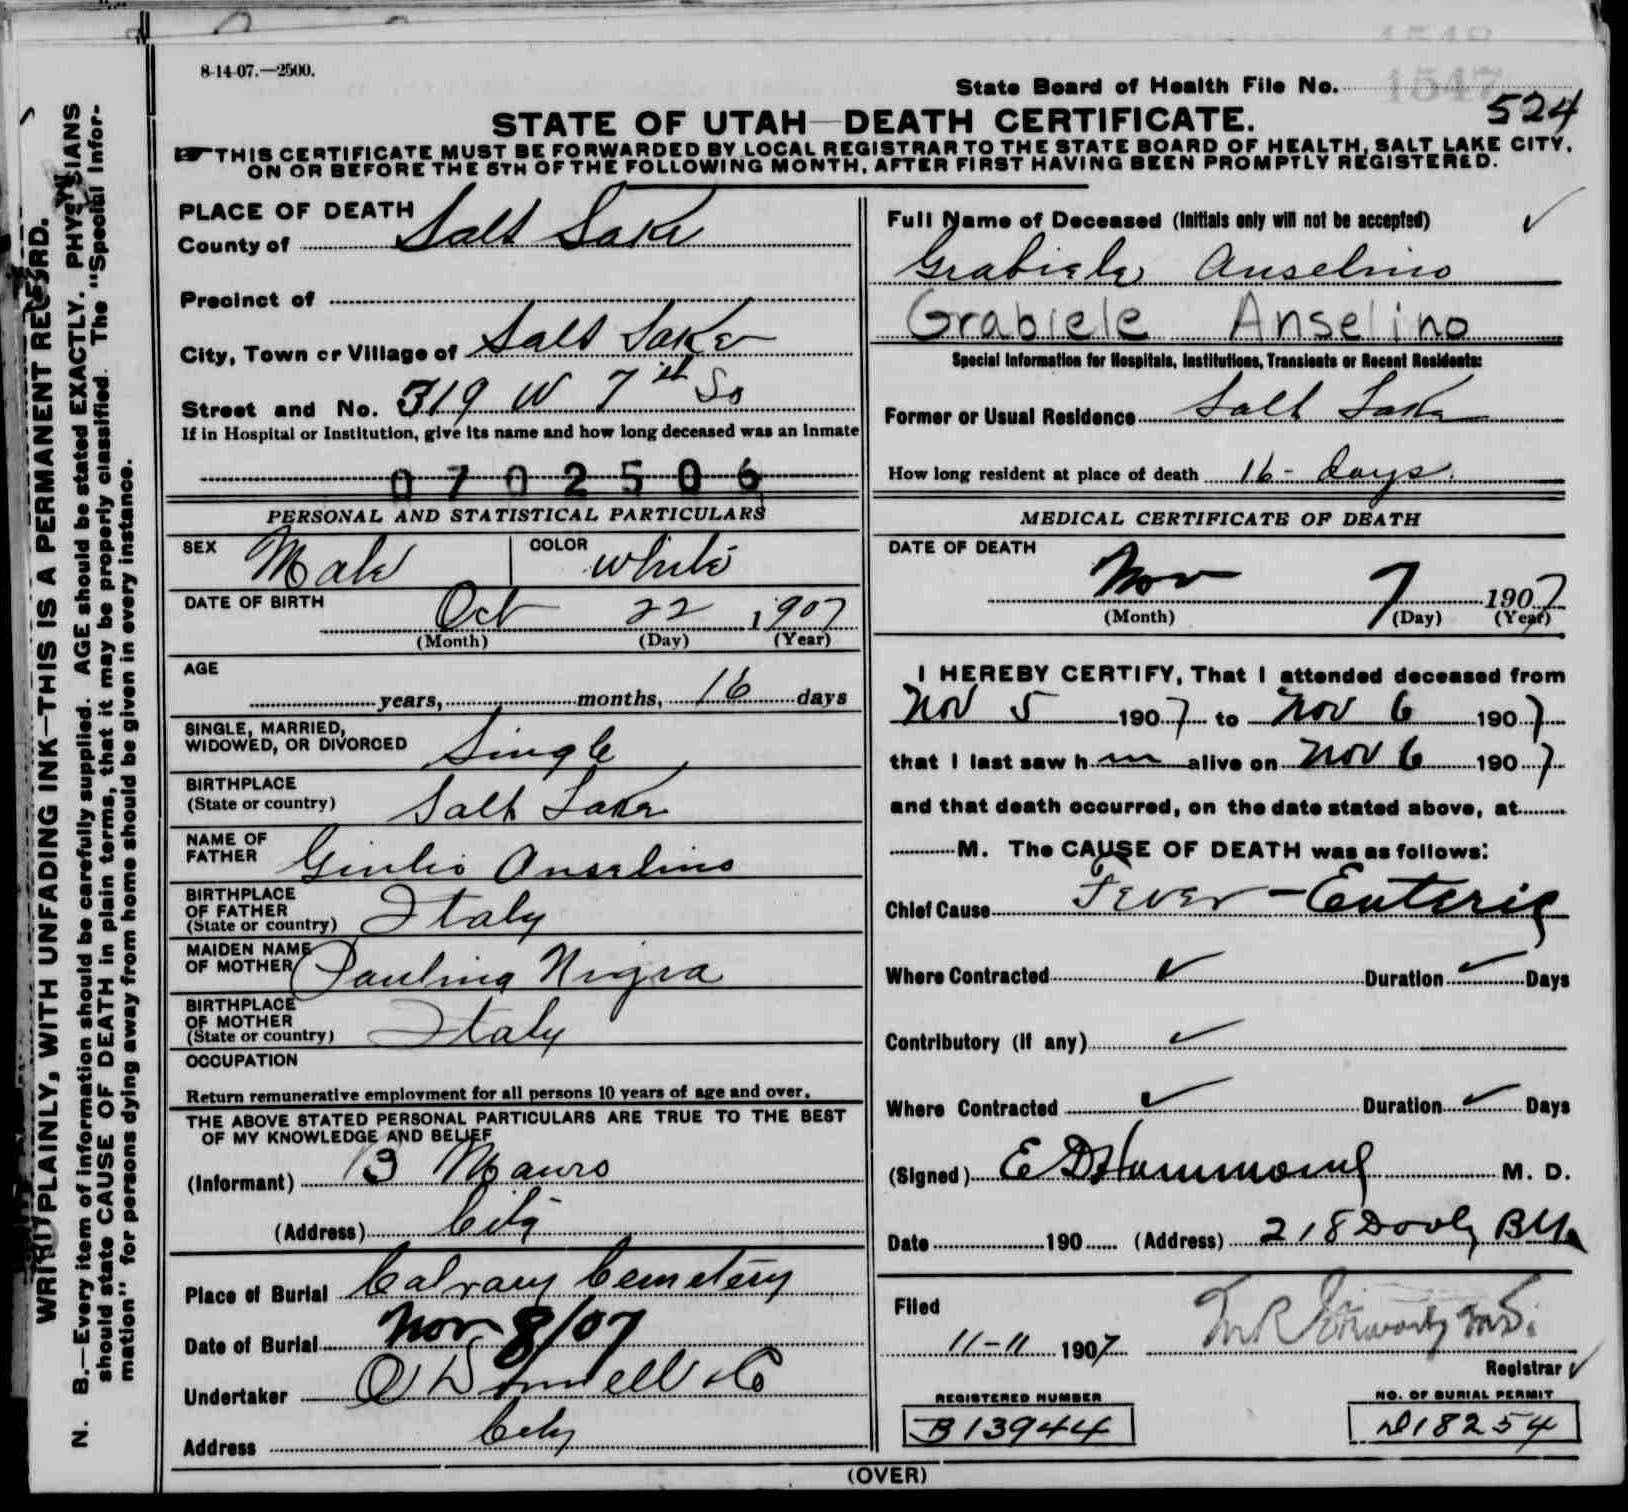 8-14-07.—2500.
State Board of Health File No. 1547
524
STATE OF UTAH—DEATH CERTIFICATE.
THIS CERTIFICATE MUST BE FORWARDED BY LOCAL REGISTRAR TO THE STATE BOARD OF HEALTH, SALT LAKE CITY,
ON OR BEFORE THE 5TH OF THE FOLLOWING MONTH, AFTER FIRST HAVING BEEN PROMPTLY REGISTERED.
WRITE PLAINLY, WITH UNFADING INK—THIS IS A PERMANENT RECORD.
N. B.—Every item of information should be carefully supplied. AGE should be stated EXACTLY. PHYSICIANS
should state CAUSE OF DEATH in plain terms, that it may be properly classified. The "Special Infor-
mation" for persons dying away from home should be given in every instance.
PLACE OF DEATH
County of Salt Lake
Precinct of
City, Town or Village of Salt Lake
Street and No. 319 W 7th So
If in Hospital or Institution, give its name and how long deceased was an inmate
0702506
PERSONAL AND STATISTICAL PARTICULARS
SEX Male COLOR White
DATE OF BIRTH Oct 22 1907
(Month) (Day) (Year)
AGE
years, months, 16 days
SINGLE, MARRIED,
WIDOWED, OR DIVORCED Single
BIRTHPLACE
(State or country) Salt Lake
NAME OF
FATHER Giulio Anselino
BIRTHPLACE
OF FATHER
(State or country) Italy
MAIDEN NAME
OF MOTHER Paulina Nigra
BIRTHPLACE
OF MOTHER
(State or country) Italy
OCCUPATION
Return remunerative employment for all persons 10 years of age and over.
THE ABOVE STATED PERSONAL PARTICULARS ARE TRUE TO THE BEST
OF MY KNOWLEDGE AND BELIEF
(Informant) B Mauro
(Address) City
Place of Burial Calvary Cemetery
Date of Burial Nov 8/07
Undertaker O'Donnell & Co
Address City
Full Name of Deceased (Initials only will not be accepted)
Grabiele Anselino
Grabiele Anselino
Special Information for Hospitals, Institutions, Transients or Recent Residents:
Former or Usual Residence Salt Lake
How long resident at place of death 16 - days.
MEDICAL CERTIFICATE OF DEATH
DATE OF DEATH
Nov 7 1907
(Month) (Day) (Year)
I HEREBY CERTIFY, That I attended deceased from
Nov 5 1907 to Nov 6 1907
that I last saw h im alive on Nov 6 1907
and that death occurred, on the date stated above, at
M. The CAUSE OF DEATH was as follows:
Chief Cause Fever - Enteric
Where Contracted ✓ Duration ✓ Days
Contributory (if any) ✓
Where Contracted ✓ Duration ✓ Days
(Signed) E D Hammond M. D.
Date 190 (Address) 218 Dooly Blk
Filed
11-11 1907
Registrar ✓
REGISTERED NUMBER
B13944
NO. OF BURIAL PERMIT
D18254
(OVER)